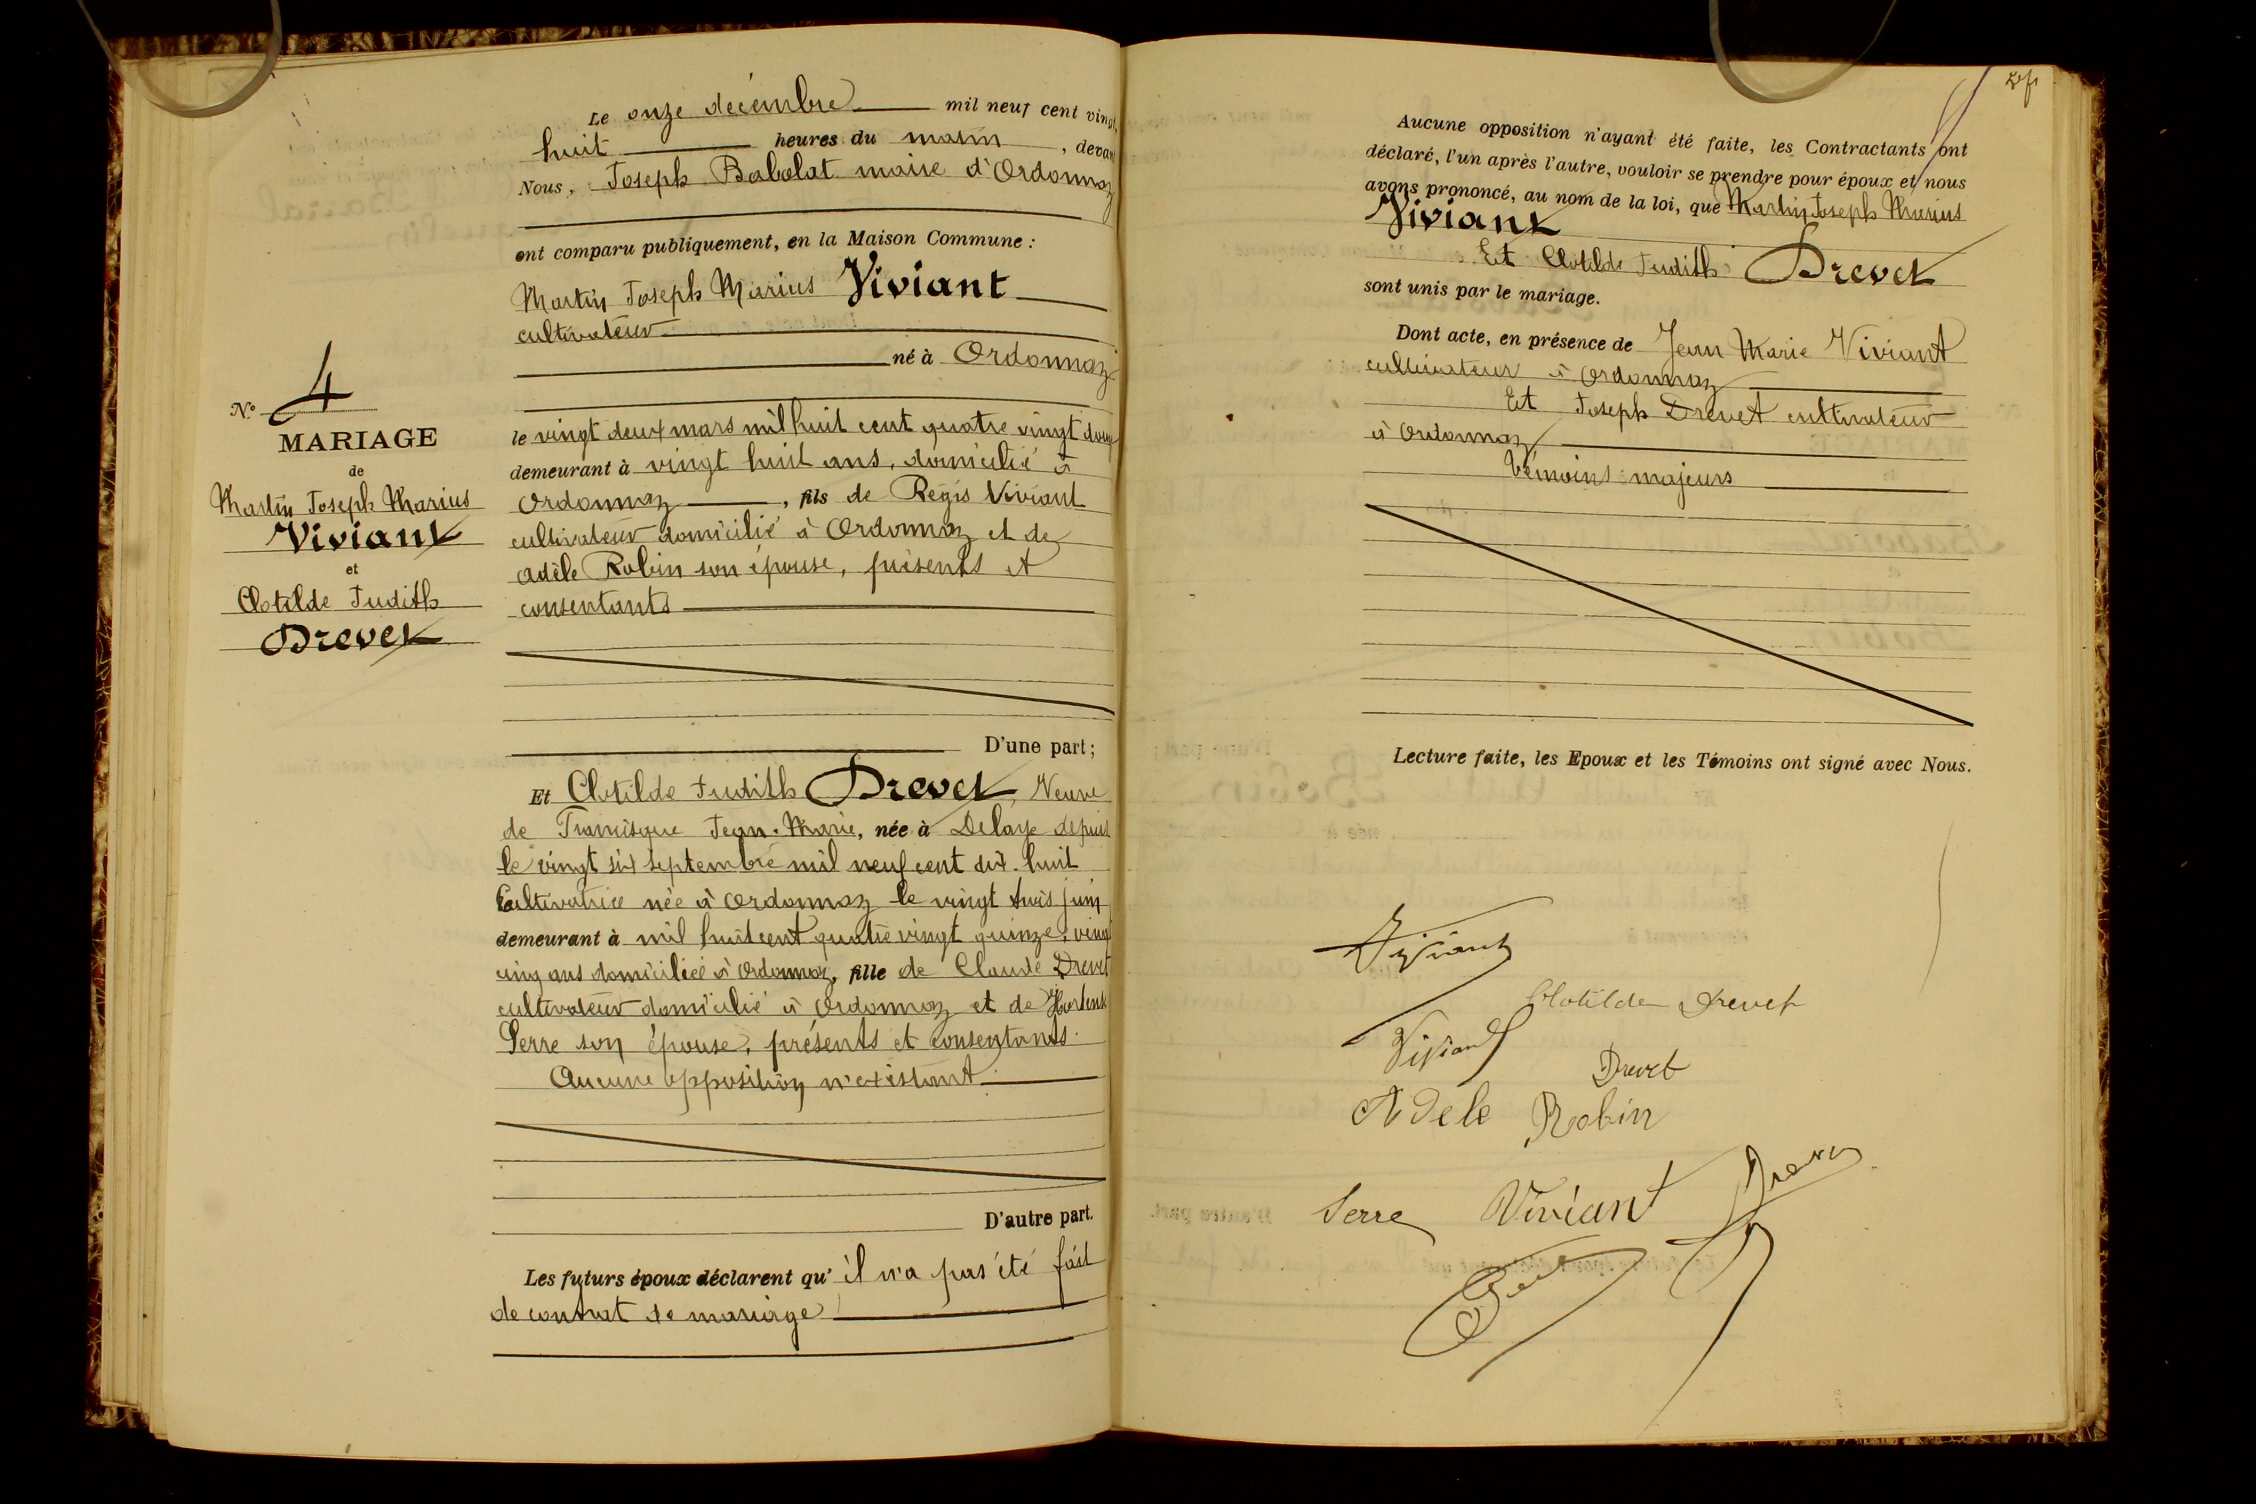 Le onze décembre mil neuf cent vingt,
huit heures du matin, devant
Nous, Joseph Babolat maire d'Ordonnaz
ont comparu publiquement, en la Maison Commune :
Martin Joseph Marius Viviant
cultivateur
né à Ordonnaz
le vingt deux mars mil huit cent quatre vingt douze
demeurant à vingt huit ans, domicilié à
Ordonnaz, fils de Régis Viviant
cultivateur domicilié à Ordonnaz et de
Adèle Robin son épouse, présents et
consentants
D'une part ;
Et Clotilde Judith Drevet, Veuve
de Jean-Marie, née à depuis
le vingt six septembre mil neuf cent dix-huit
Cultivatrice née à Ordonnaz le vingt trois juin
demeurant à mil huit cent quatre vingt quinze, vingt
cinq ans domiciliée à Ordonnaz, fille de Claude Drevet
cultivateur domicilié à Ordonnaz et de Hortense
Serre son épouse, présents et consentants.
Aucune opposition n'existant
D'autre part.
Les futurs époux déclarent qu' il n'a pas été fait
de contrat de mariage
N.° 4
MARIAGE
de
Martin Joseph Marius
Viviant
et
Clotilde Judith
Drevet
Aucune opposition n'ayant été faite, les Contractants ont
déclaré, l'un après l'autre, vouloir se prendre pour époux et nous
avons prononcé, au nom de la loi, que Martin Joseph Marius
Viviant
Et Clotilde Judith Drevet
sont unis par le mariage.
Dont acte, en présence de Jean Marie Viviant
cultivateur à Ordonnaz
Et Joseph Drevet cultivateur
à Ordonnaz
témoins majeurs
Lecture faite, les Epoux et les Témoins ont signé avec Nous.
Viviant
Clotilde Drevet
Viviant
Drevet
Adele Robin
Serre Viviant Drevet